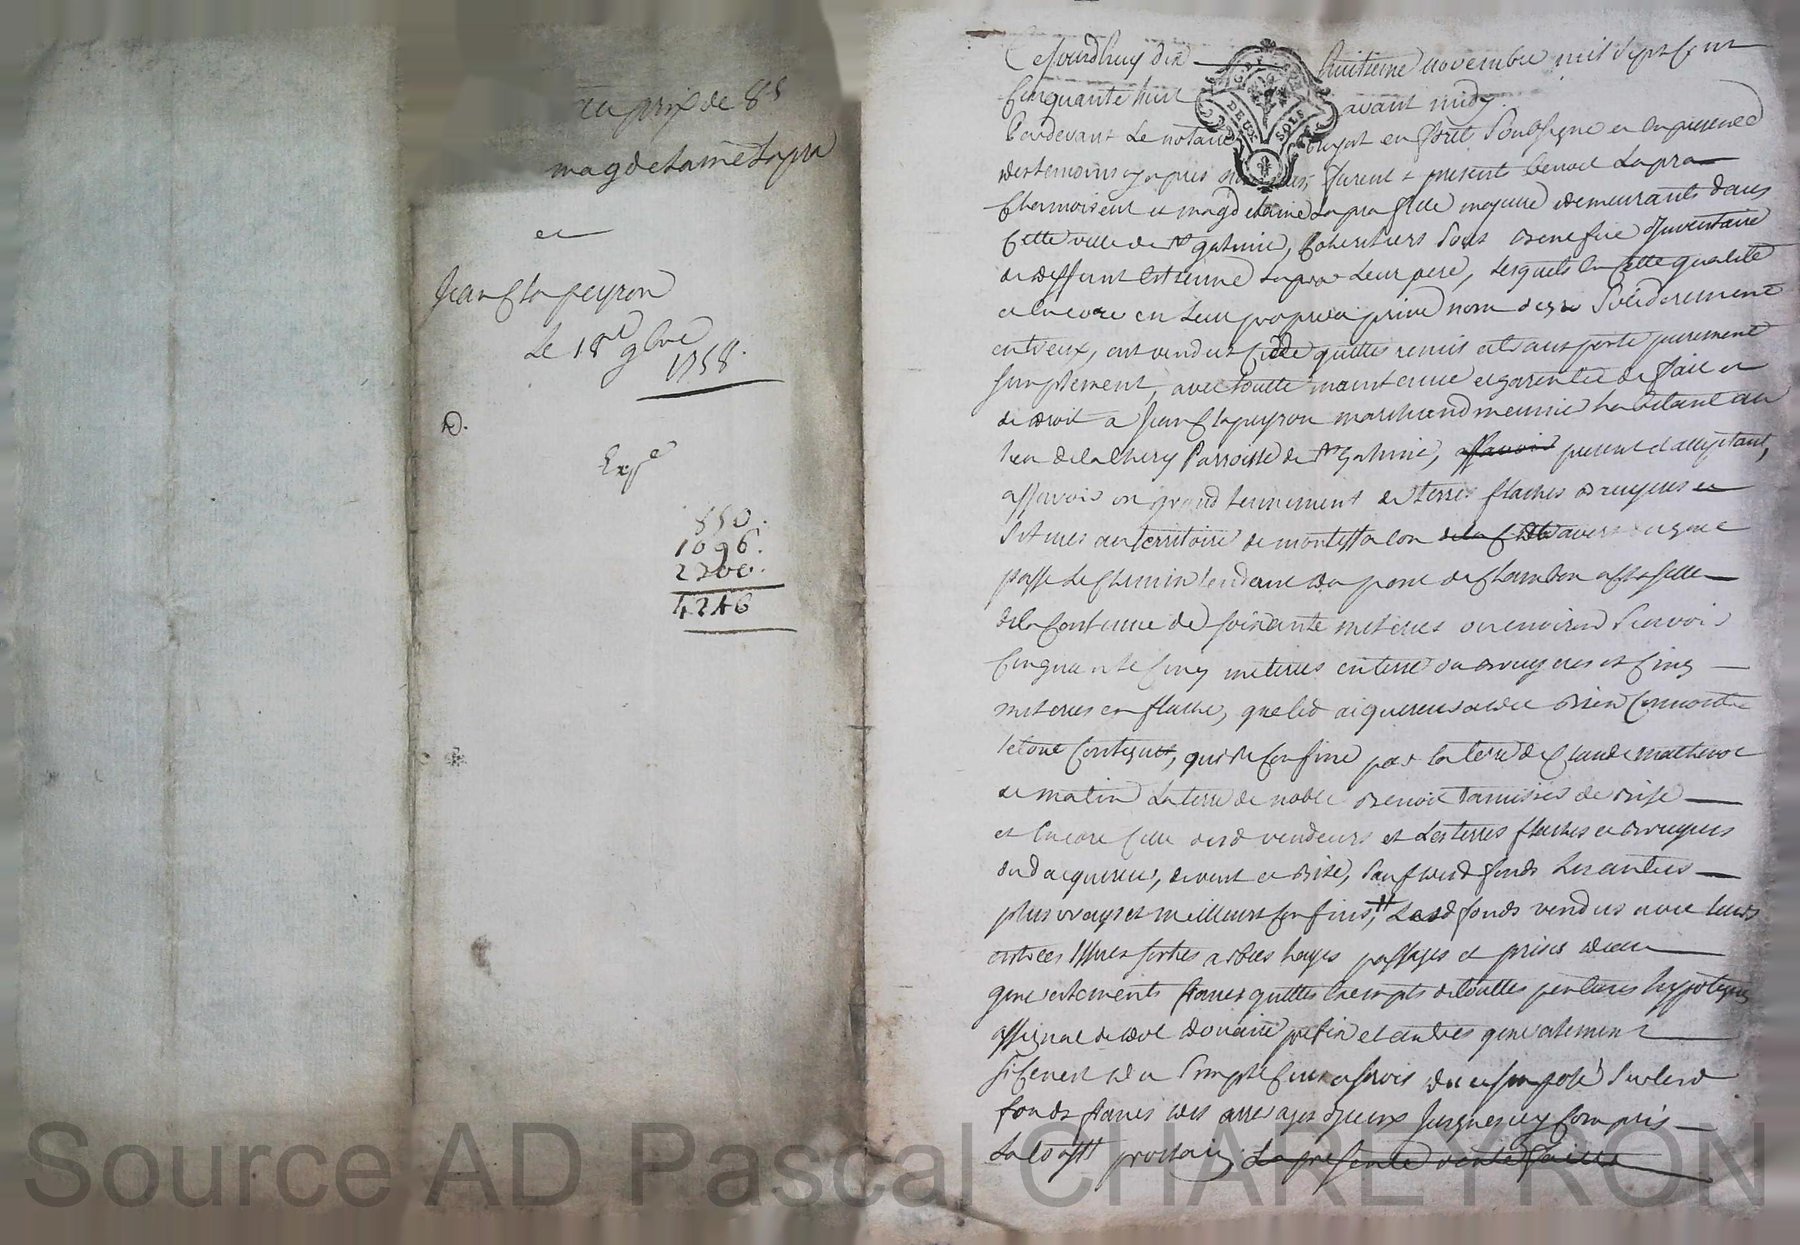 au prix de 8
magdelaine Lapra
et
Jean Clapeyron
Le 18e 9bre
1758.
D.
Exp.e
850.
1096.
2300.
4246
Cejourdhuy dix huitieme novembre mil sept cent
Cinquante huit avant midy.
Pardevant Le notaire Royal en forets soubsigné et en presence
des temoins cy apres furent presents benoit Lapra
Chamoiseur et magdelaine Lapra fille majeure demeurants dans
Cette ville de St galmier, Coheritiers sous Benefice dinventaire
de deffunt Estienne Lapra Leur pere, Lesquels en Cette qualité
et encore en Leur propre et privé nom solidairement
entreux, ont vendus Cedé quitté remis et transporté purement
simplement, avec toutte maintenue et garentie de fait et
de droit a Jean Clapeyron marchand meunier habitant au
lieu de la thiery Parroisse de St Galmier, assavoir present et acceptant,
assavoir un grand tennement de terres flaches Bruyeres et
situes au territoire de montessalon de la
passe Le Chemin tendant du pont de Chambon a
de la Contenue de soixante meterees ou environ scavoir
Cinquante Cinq meterees en terre ou Bruyeres et Cinq
meterees en flache, que led aiquereur a dit Bien Connoitre
le tout Contigus, qui se Confine par la terre de Claude mathevot
de matin La terre de noble Benoit de Bise
et encore Celle desd vendeurs et Les terres flaches et Bruyeres
dud acquereur, de vent et Bise, Sauf desd fonds Les autres
plus vrays et meilleurs Confins, Lesd fonds vendus avec leurs
entrées issues sorties arbres hayes passages et prises deau
generalement francs quittes exempts de touttes pentions hypoteques
assignat de dot Douaire prefix et autres generalement
si Cenest du simple Cens a servis du et imposé Surlesd
fonds francs des arrerages diceux Jusques icy Compris
La tosst prochain, La presente vente faitte
Source AD Pascal CHAREYRON